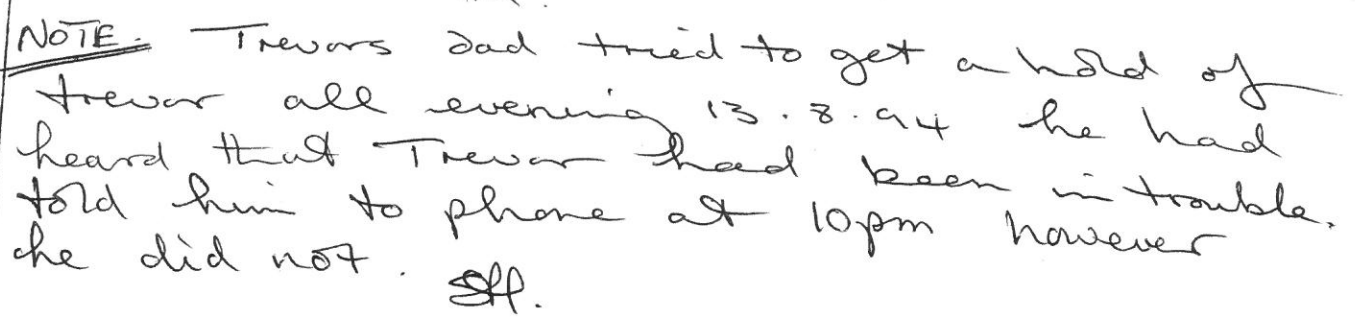 NOTE. Trevors dad tried to get a hold of
trevor all evening 13.8.94 he had
heard that Trevor had been in trouble.
told him to phone at 10pm however
he did not. SH.